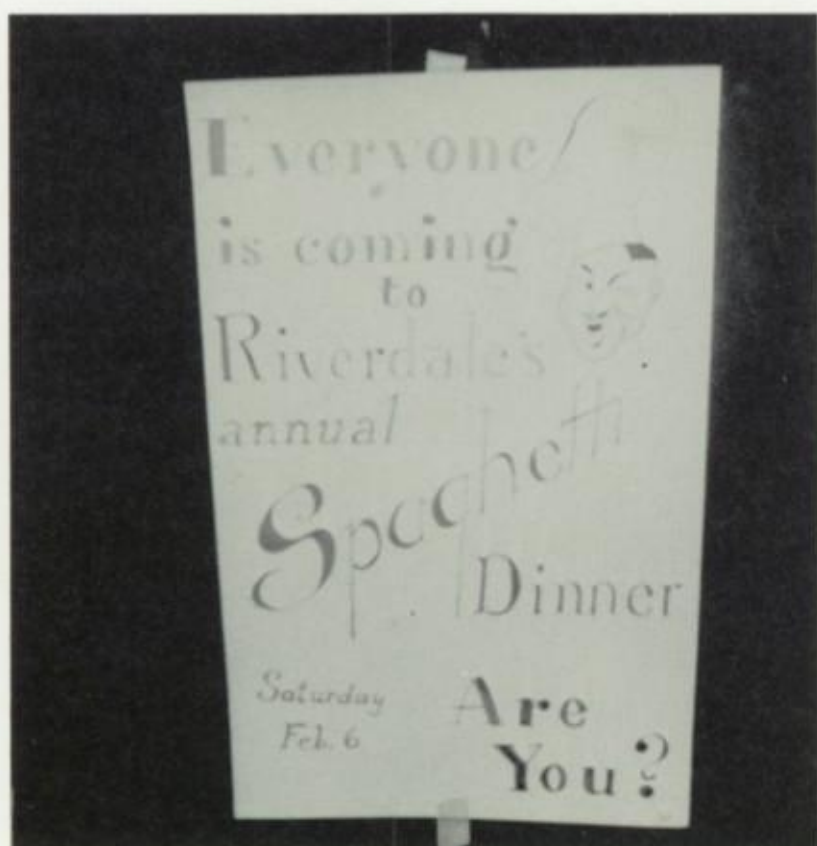 Everyone!
is coming
to
Riverdale's
annual
Spaghetti
Dinner
Saturday
Feb. 6
Are
You?